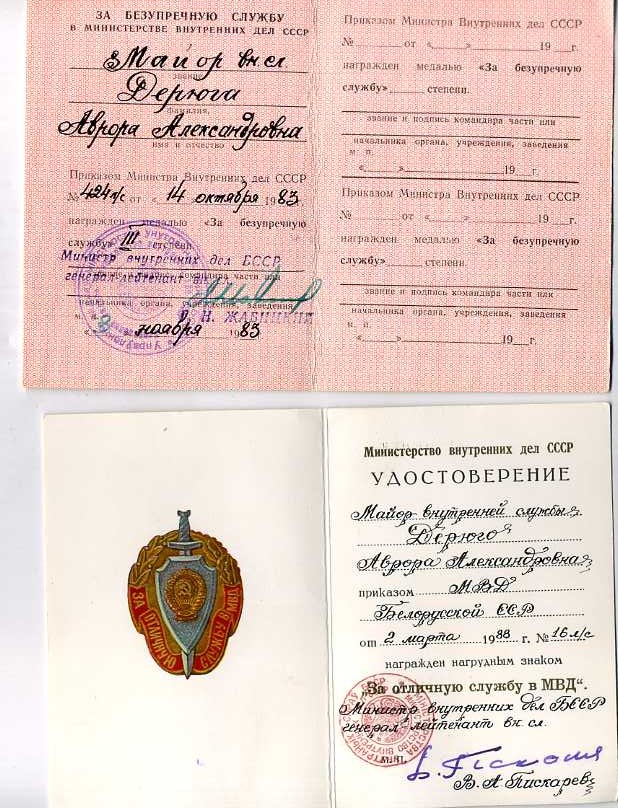 ЗА БЕЗУПРЕЧНУЮ СЛУЖБУ
В МИНИСТЕРСТВЕ ВНУТРЕННИХ ДЕЛ СССР
Майор вн сл.
звание
Дерюга
фамилия,
Аврора Александровна
имя и отчество
Приказом Министра Внутренних дел СССР
№ 424 л/с от «14» октября 1983
награжден медалью «За безупречную
службу» III степени.
Министр внутренних дел БССР
звание и подпись командира части или
генерал-лейтенант вн.
начальника органа, учреждения, заведения
м. п. Н. ЖАБИЦКИЙ
ноября 1983
Приказом Министра Внутренних дел СССР
№ от « » 19 г.
награжден медалью «За безупречную
службу» степени.
звание и подпись командира части или
начальника органа, учреждения, заведения
м. п.
« » 19 г.
Приказом Министра Внутренних дел СССР
№ от « » 19 г.
награжден медалью «За безупречную
службу» степени.
звание и подпись командира части или
начальника органа, учреждения, заведения
м. п.
« » 19 г.
ЗА ОТЛИЧНУЮ СЛУЖБУ В МВД
Министерство внутренних дел СССР
УДОСТОВЕРЕНИЕ
Майор внутренней службы
Дерюго
Аврора Александровна
приказом МВД
Белорусской ССР
от 2 марта 1988 г. № 16 л/с
награжден нагрудным знаком
„За отличную службу в МВД“.
Министр внутренних дел БССР
генерал-лейтенант вн. сл.
В. А. Пискарев